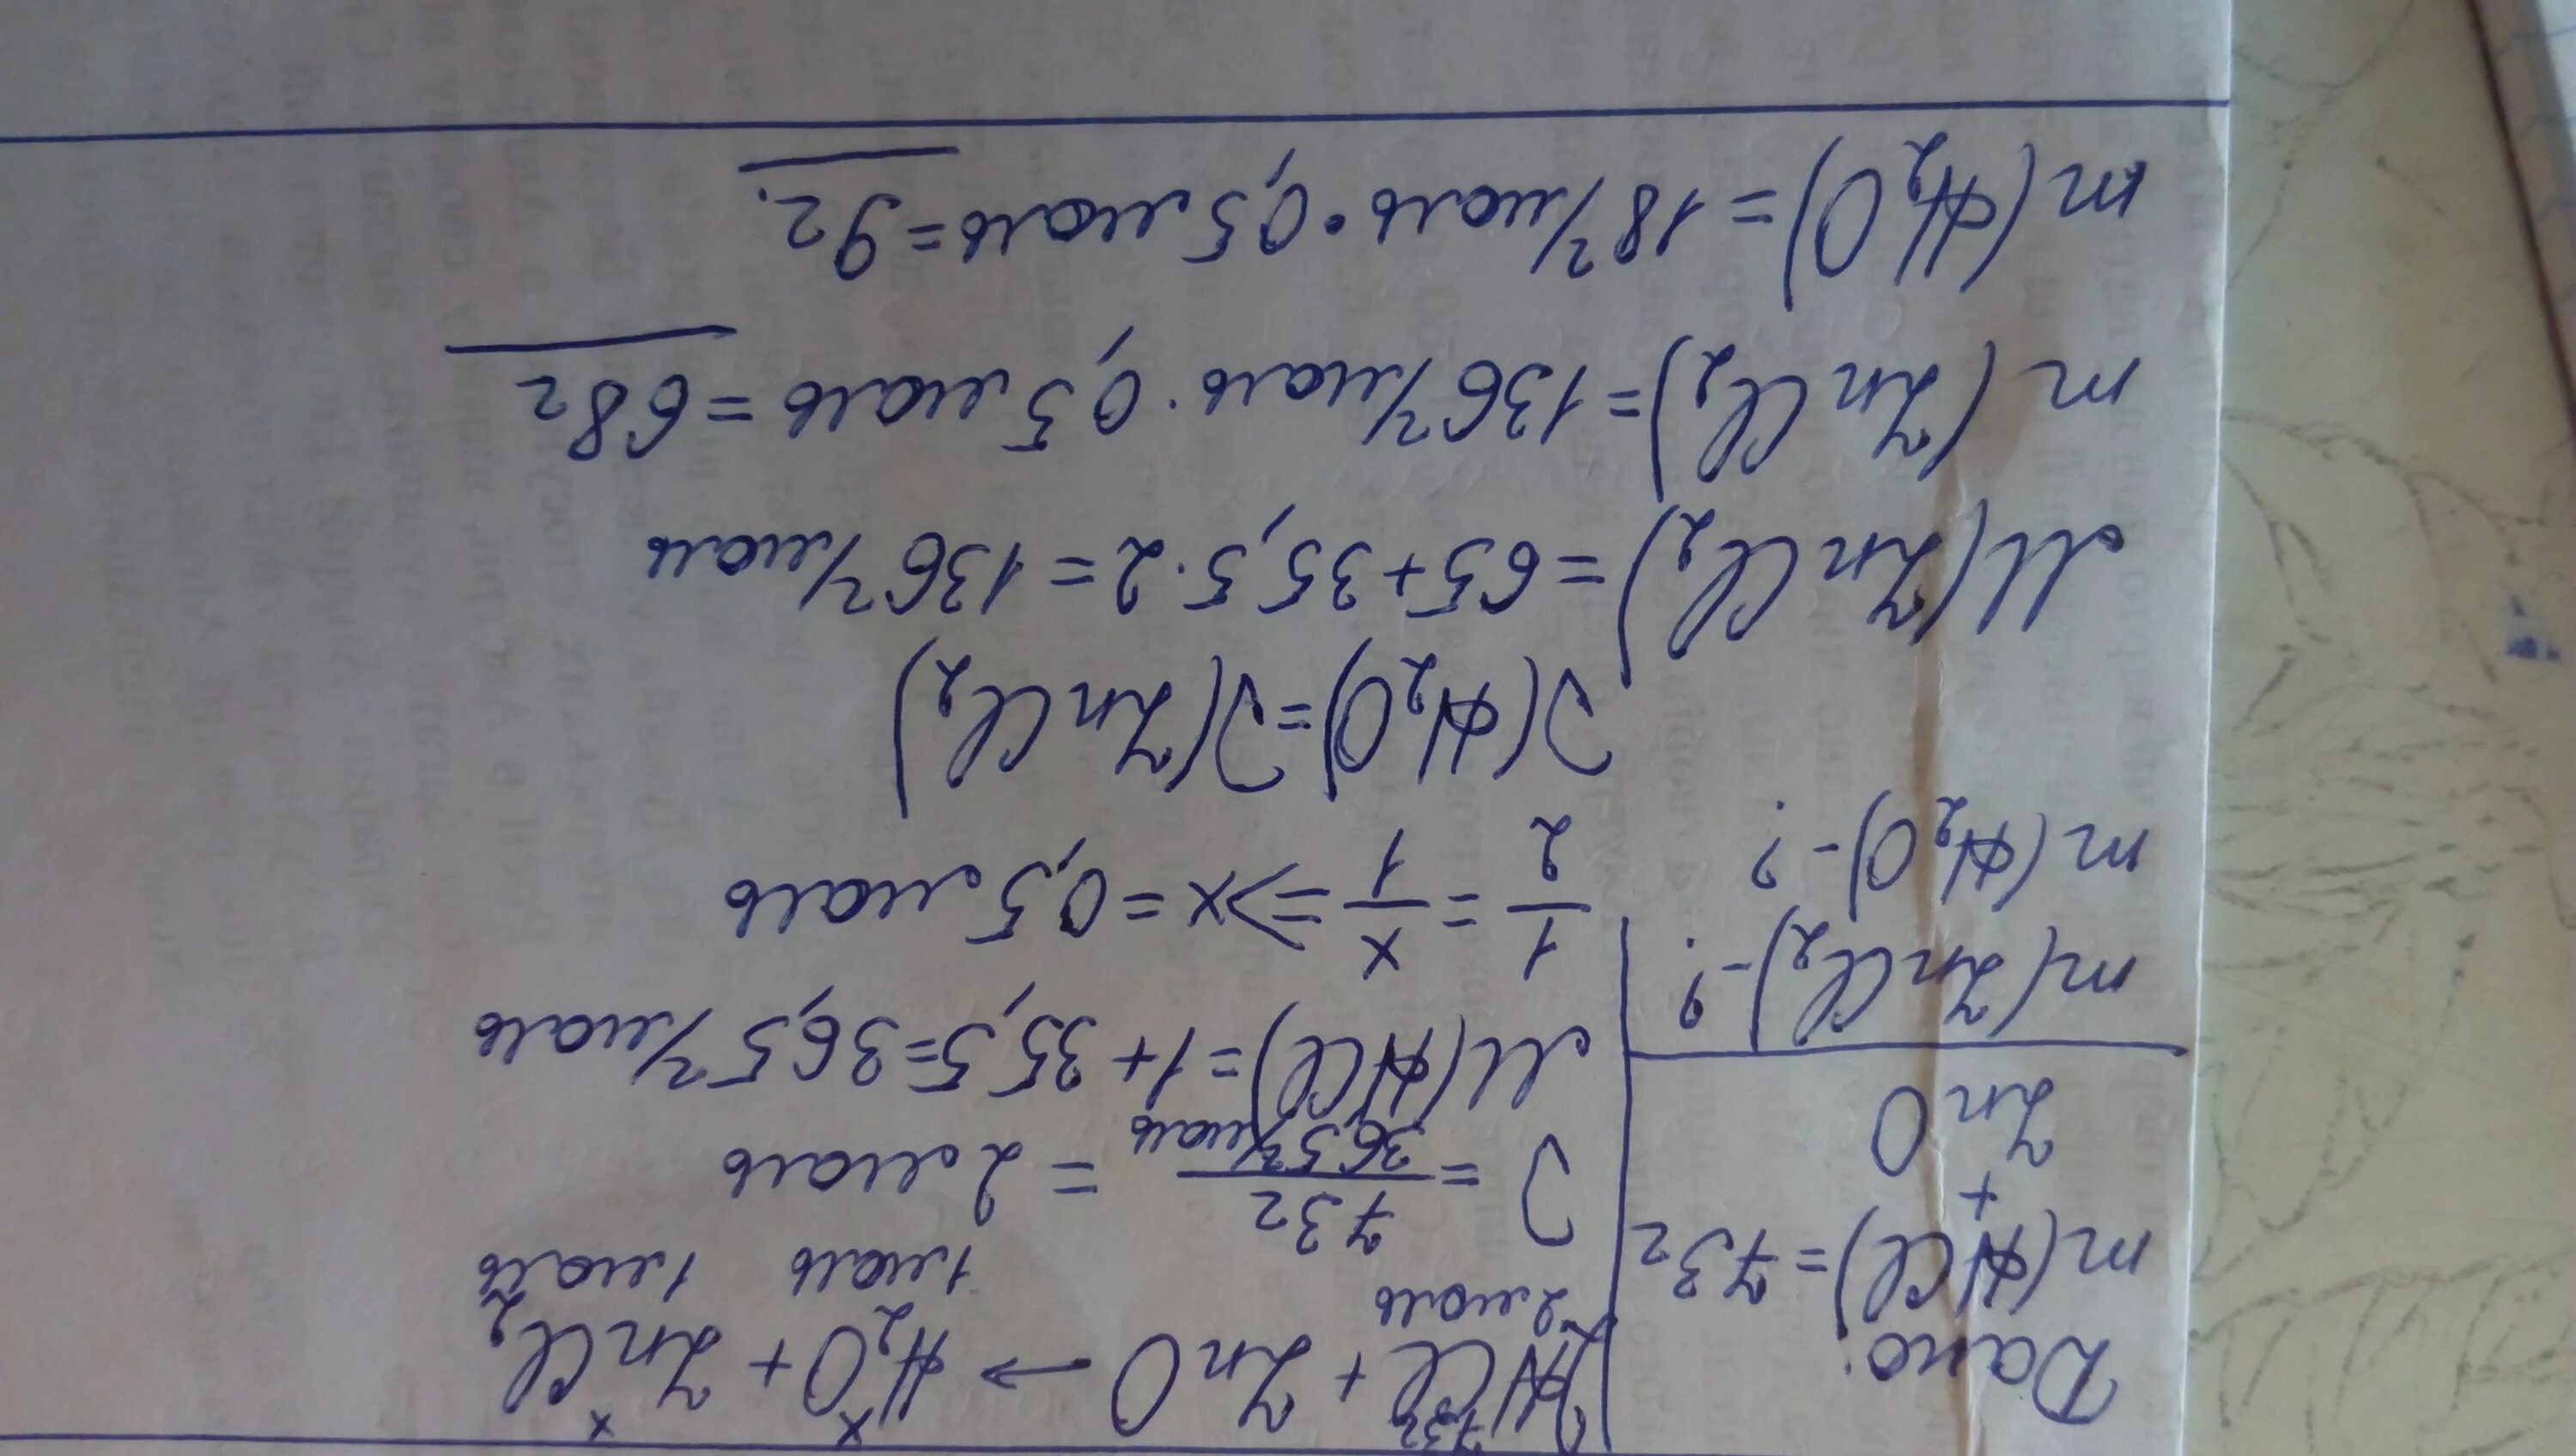 Дано:
m(HCl)=73г
+
ZnO
m(ZnCl₂)-?
m(H₂O)-?
73г x x
2HCl + ZnO → H₂O + ZnCl₂
2моль 1моль 1моль
ν = 73г / 36,5г/моль = 2моль
M(HCl)=1+35,5=36,5г/моль
1/2 = x/1 ⇒ x = 0,5моль
ν(H₂O)=ν(ZnCl₂)
M(ZnCl₂)=65+35,5·2=136г/моль
m(ZnCl₂)=136г/моль·0,5моль=68г
m(H₂O)=18г/моль·0,5моль=9г.